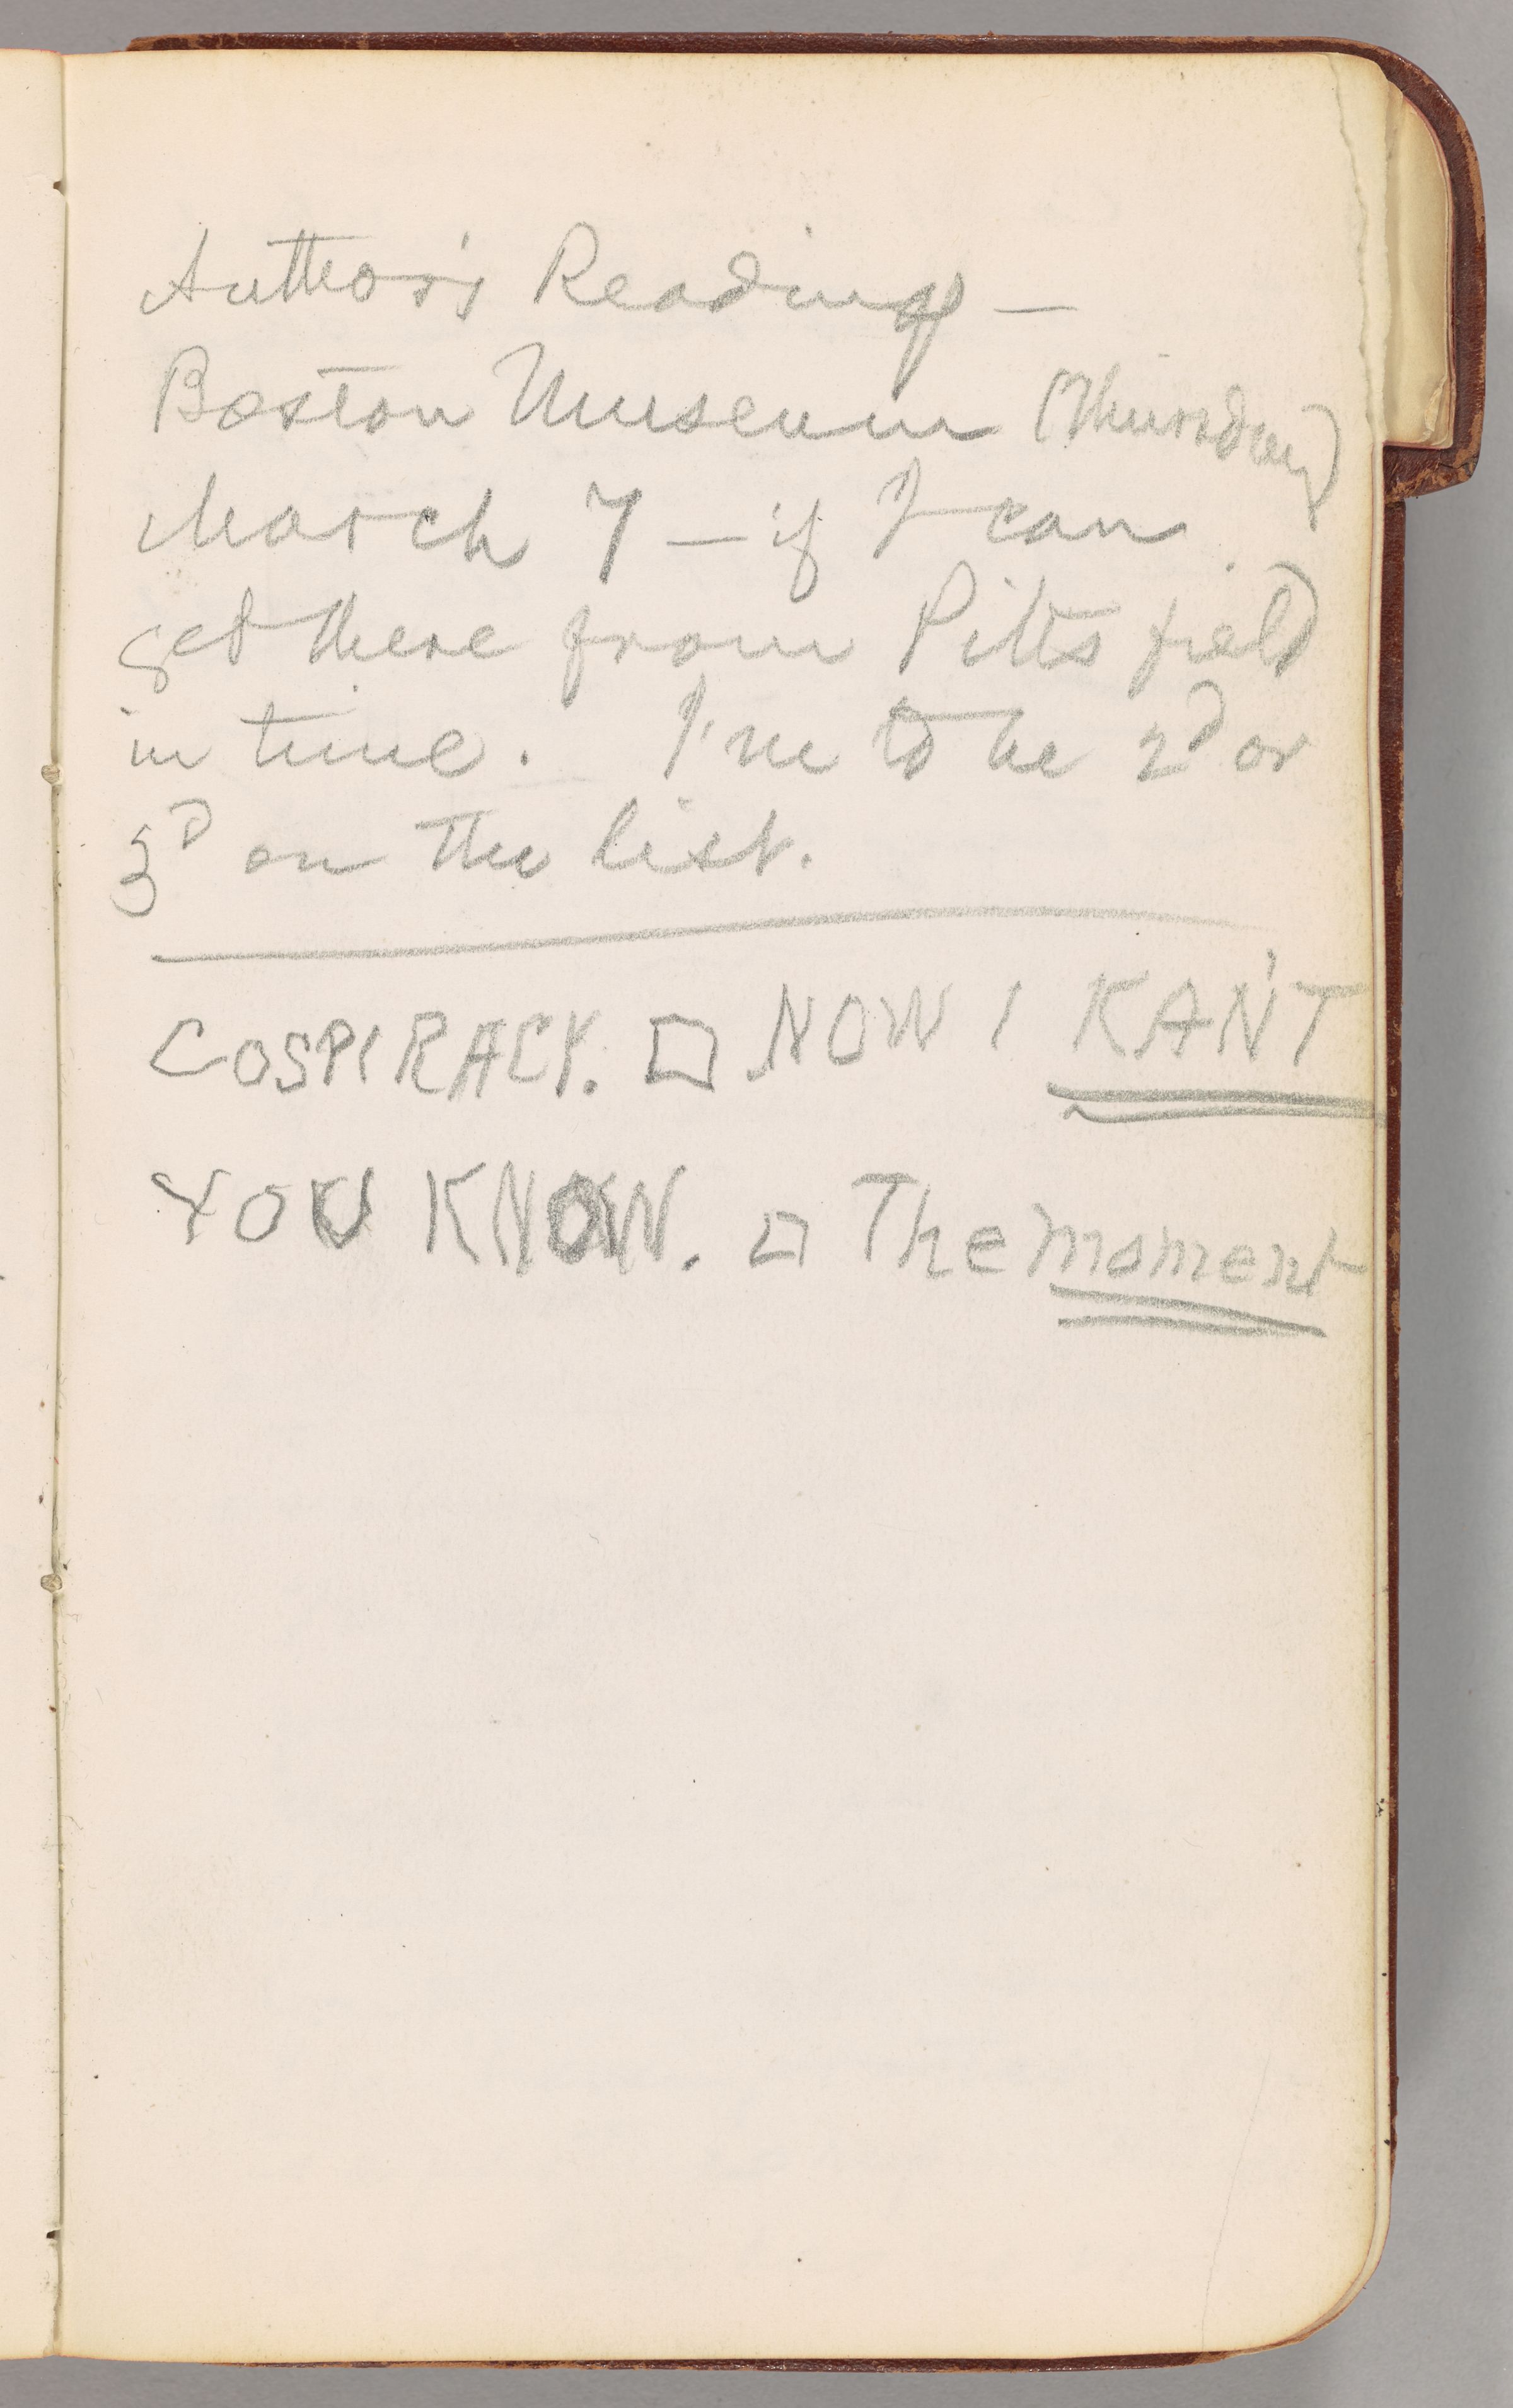 Author's Readings —
Boston Museum (Thursday)
March 7 — if I can
get there from Pittsfield
in time. I'm to be 2d or
3d on the list.
COSPIRACY. □ NOW I KAN'T
YOU KNOW. □ The moment